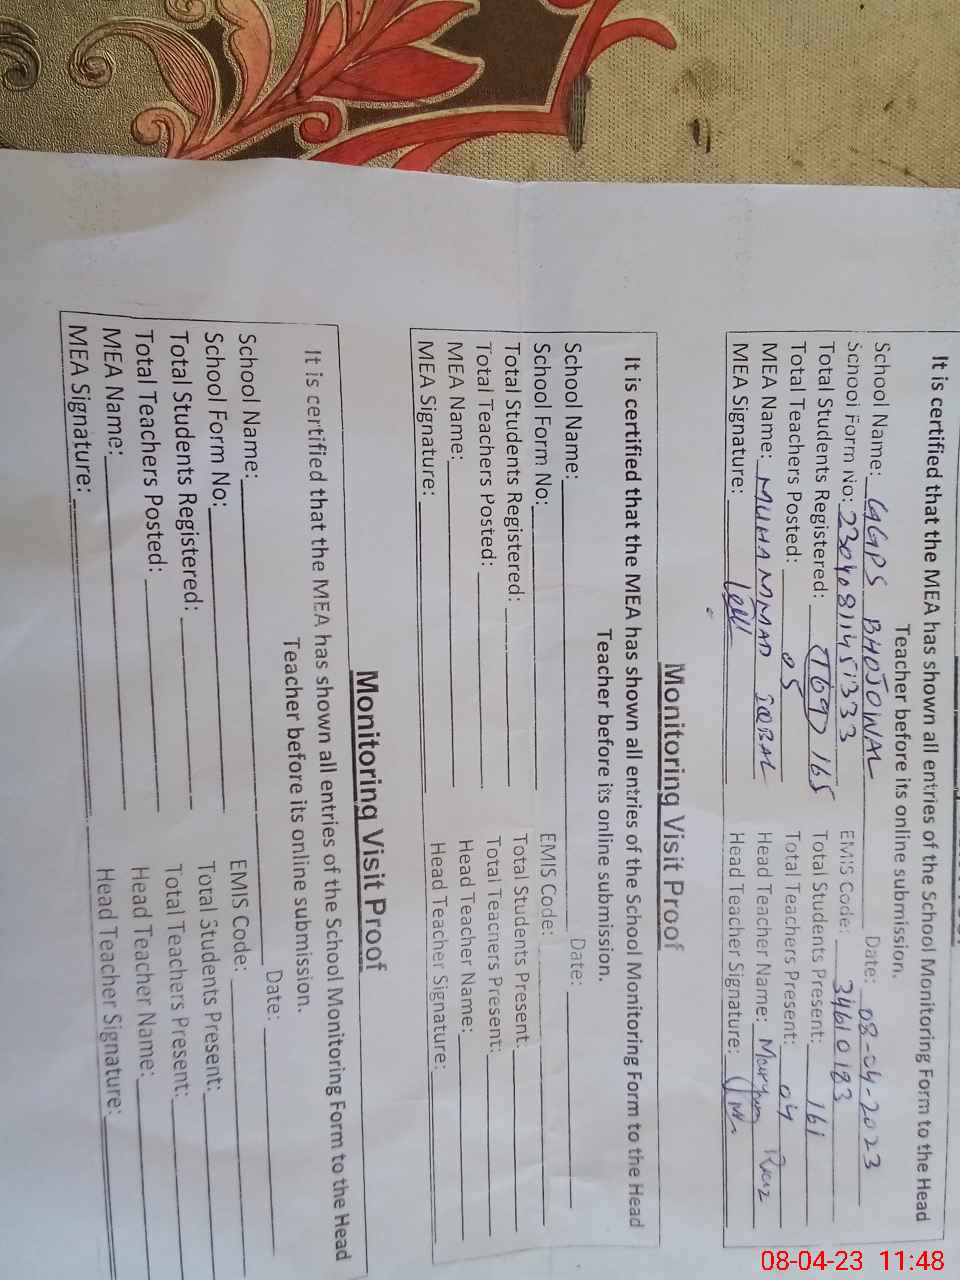 It is certified that the MEA has shown all entries of the School Monitoring Form to the Head
Teacher before its online submission.
School Name: GGPS BHOJOWAL Date: 08-04-2023
School Form No: EMIS Code: 34610183
Total Students Registered: 165 Total Students Present: 161
Total Teachers Posted: 05 Total Teachers Present: 04
MEA Name: MUHAMMAD IQBAL Head Teacher Name: Maryam Riaz
MEA Signature: Head Teacher Signature:
Monitoring Visit Proof
It is certified that the MEA has shown all entries of the School Monitoring Form to the Head
Teacher before its online submission.
School Name: Date:
School Form No: EMIS Code:
Total Students Registered: Total Students Present:
Total Teachers Posted: Total Teachers Present:
MEA Name: Head Teacher Name:
MEA Signature: Head Teacher Signature:
Monitoring Visit Proof
It is certified that the MEA has shown all entries of the School Monitoring Form to the Head
Teacher before its online submission.
School Name: Date:
School Form No: EMIS Code:
Total Students Registered: Total Students Present:
Total Teachers Posted: Total Teachers Present:
MEA Name: Head Teacher Name:
MEA Signature: Head Teacher Signature:
08-04-23 11:48